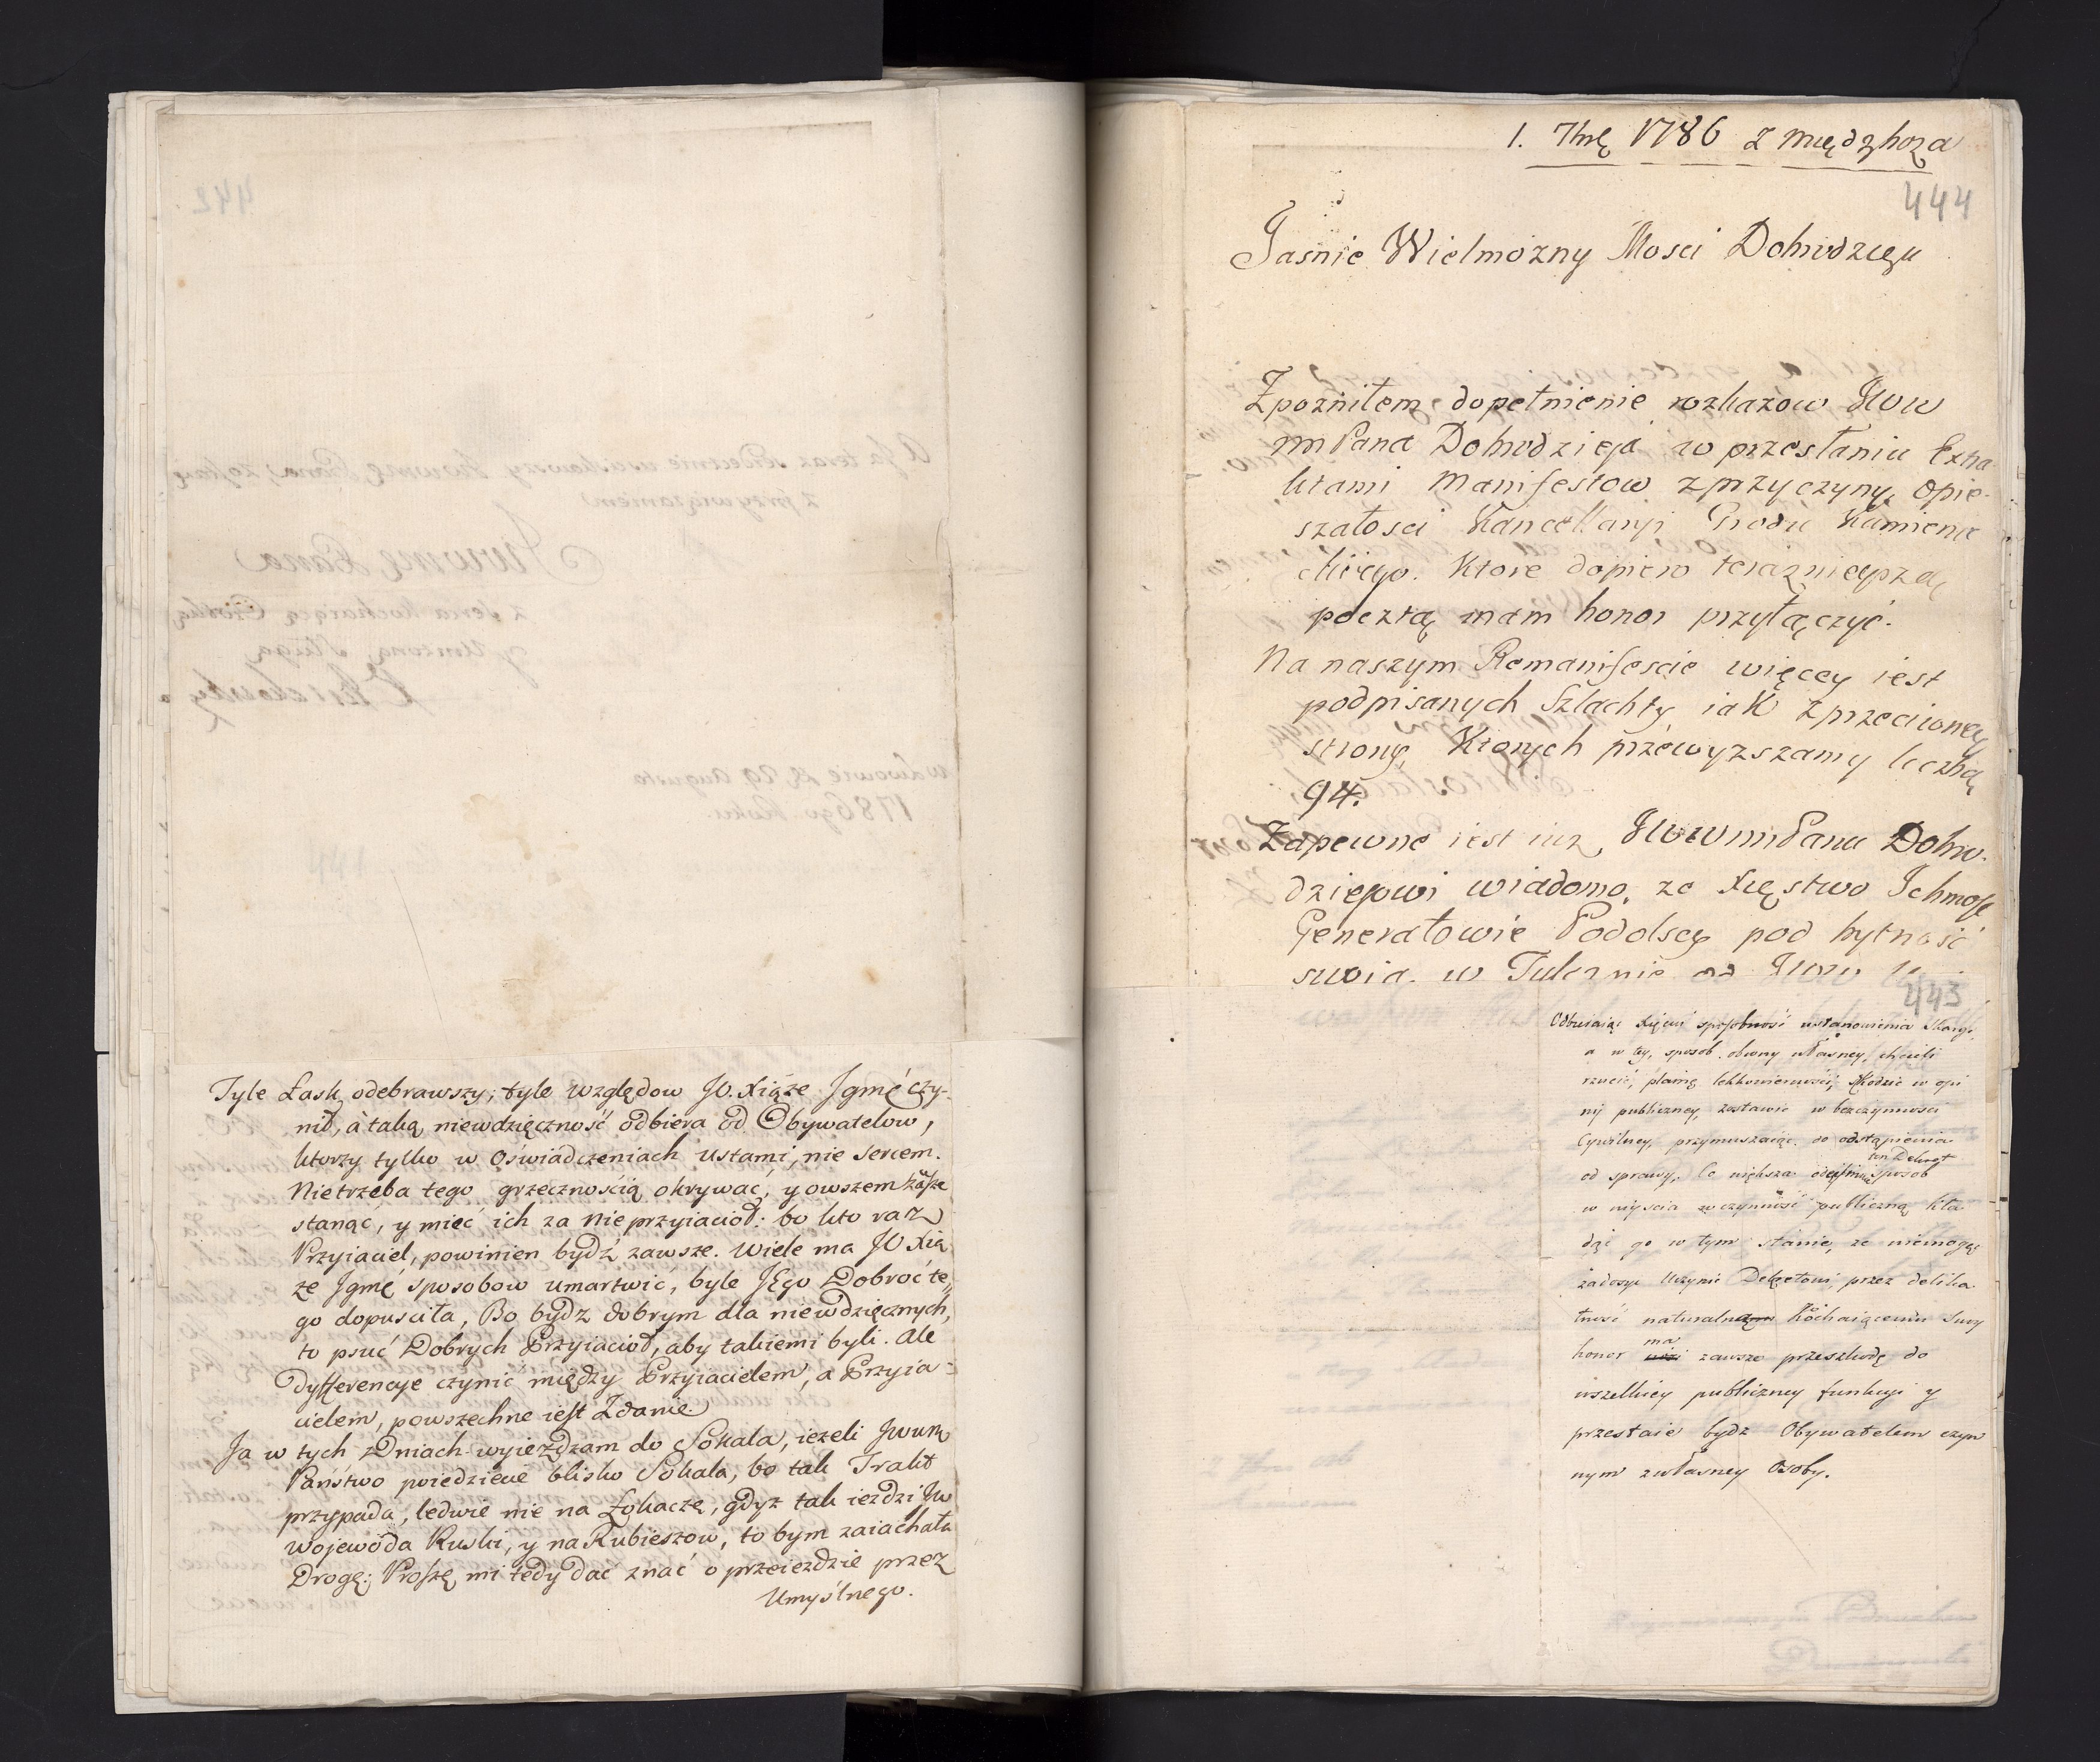 Tyle Łask odebrawszy; tyle względow JO. Xiąże Jgmć czy-
nił, à taką niewdzięczność odbiera od Obywatelow,
ktorzy tylko w oświadczeniach ustami, nie sercem.
Nietrzeba tego grzecznością okrywać, y owszem
stanąć, y mieć ich za nieprzyiacioł: bo kto raz
Przyiaciel, powinien bydź zawsze. Wiele ma JO Xią
że Jgmć sposobow umartwić, byle JEgo Dobroć te„
go dopusciła, Bo bydz dobrym dla niewdzięcznych,
to psuć Dobrych Przyiacioł, aby takiemi byli. Ale
Dyfferencye czynić między Przyiacielem, a Przyia=
cielem, powszechne iest Zdanie.
Ja w tych Dniach wyieżdzam do Sokala, iezeli Jwwm
Państwo poiedziecie blisko Sokala, bo tak Trakt
przypada, ledwie nie na Łokacze, gdyz tak ieździ Jw
Wojewoda Ruski, y na Rubieszow, to bym zaiachała
Drogę; Proszę mi tedy dać znać o przeieździe przez
Umyślnego.
1. 7brę 1786 z Międzyboża
444
Jasnie Wielmozny Mosci Dobrodzieju
Zpozniłem dopełnienie rozkazow JWW
mPana Dobrodzieja w przesłaniu Extra
ktami Manifestow z przyczyny opie-
szałosci Kancellaryi Grodu Kamienie
ckiego. Ktore dopiero teraznieyszą
pocztą mam honor przyłączyć.
Na naszym Remanifescie więcey iest
podpisanych Szlachty iak z przeciwney
strony, Ktorych przewyzszamy liczbą
94.
Zapewne iest iuz JWWmPanu Dobro-
dziejowi wiadomo, ze Xięstwo Ichmosc
Generałowie Podolscy pod bytność
swoia w Tulcznie od JWW
443
Odbieraiąc Xięciu sposobność ustanowienia Skargi,
a w tey, sposob obrony własney, chcieli
rzucić plamę lekkomienności, szkodzić w opi
nij publiczney, zostawić w bezczynności
Cywilney, przymuszaiąc do odstąpienia
od sprawy, Co większa ten Dekret sposob
w niyscia w czynność publiczną kła
dąc go w tym stanie, że niemogąc
zadosyc Uczynić Dekretowi, przez delika
tność naturalną Kochaiącemu Swoy
honor ma zawsze przeszkodę do
wszelkiey publiczney funkcyi y
przestaie bydz Obywatelem czyn
nym z własney Osoby.